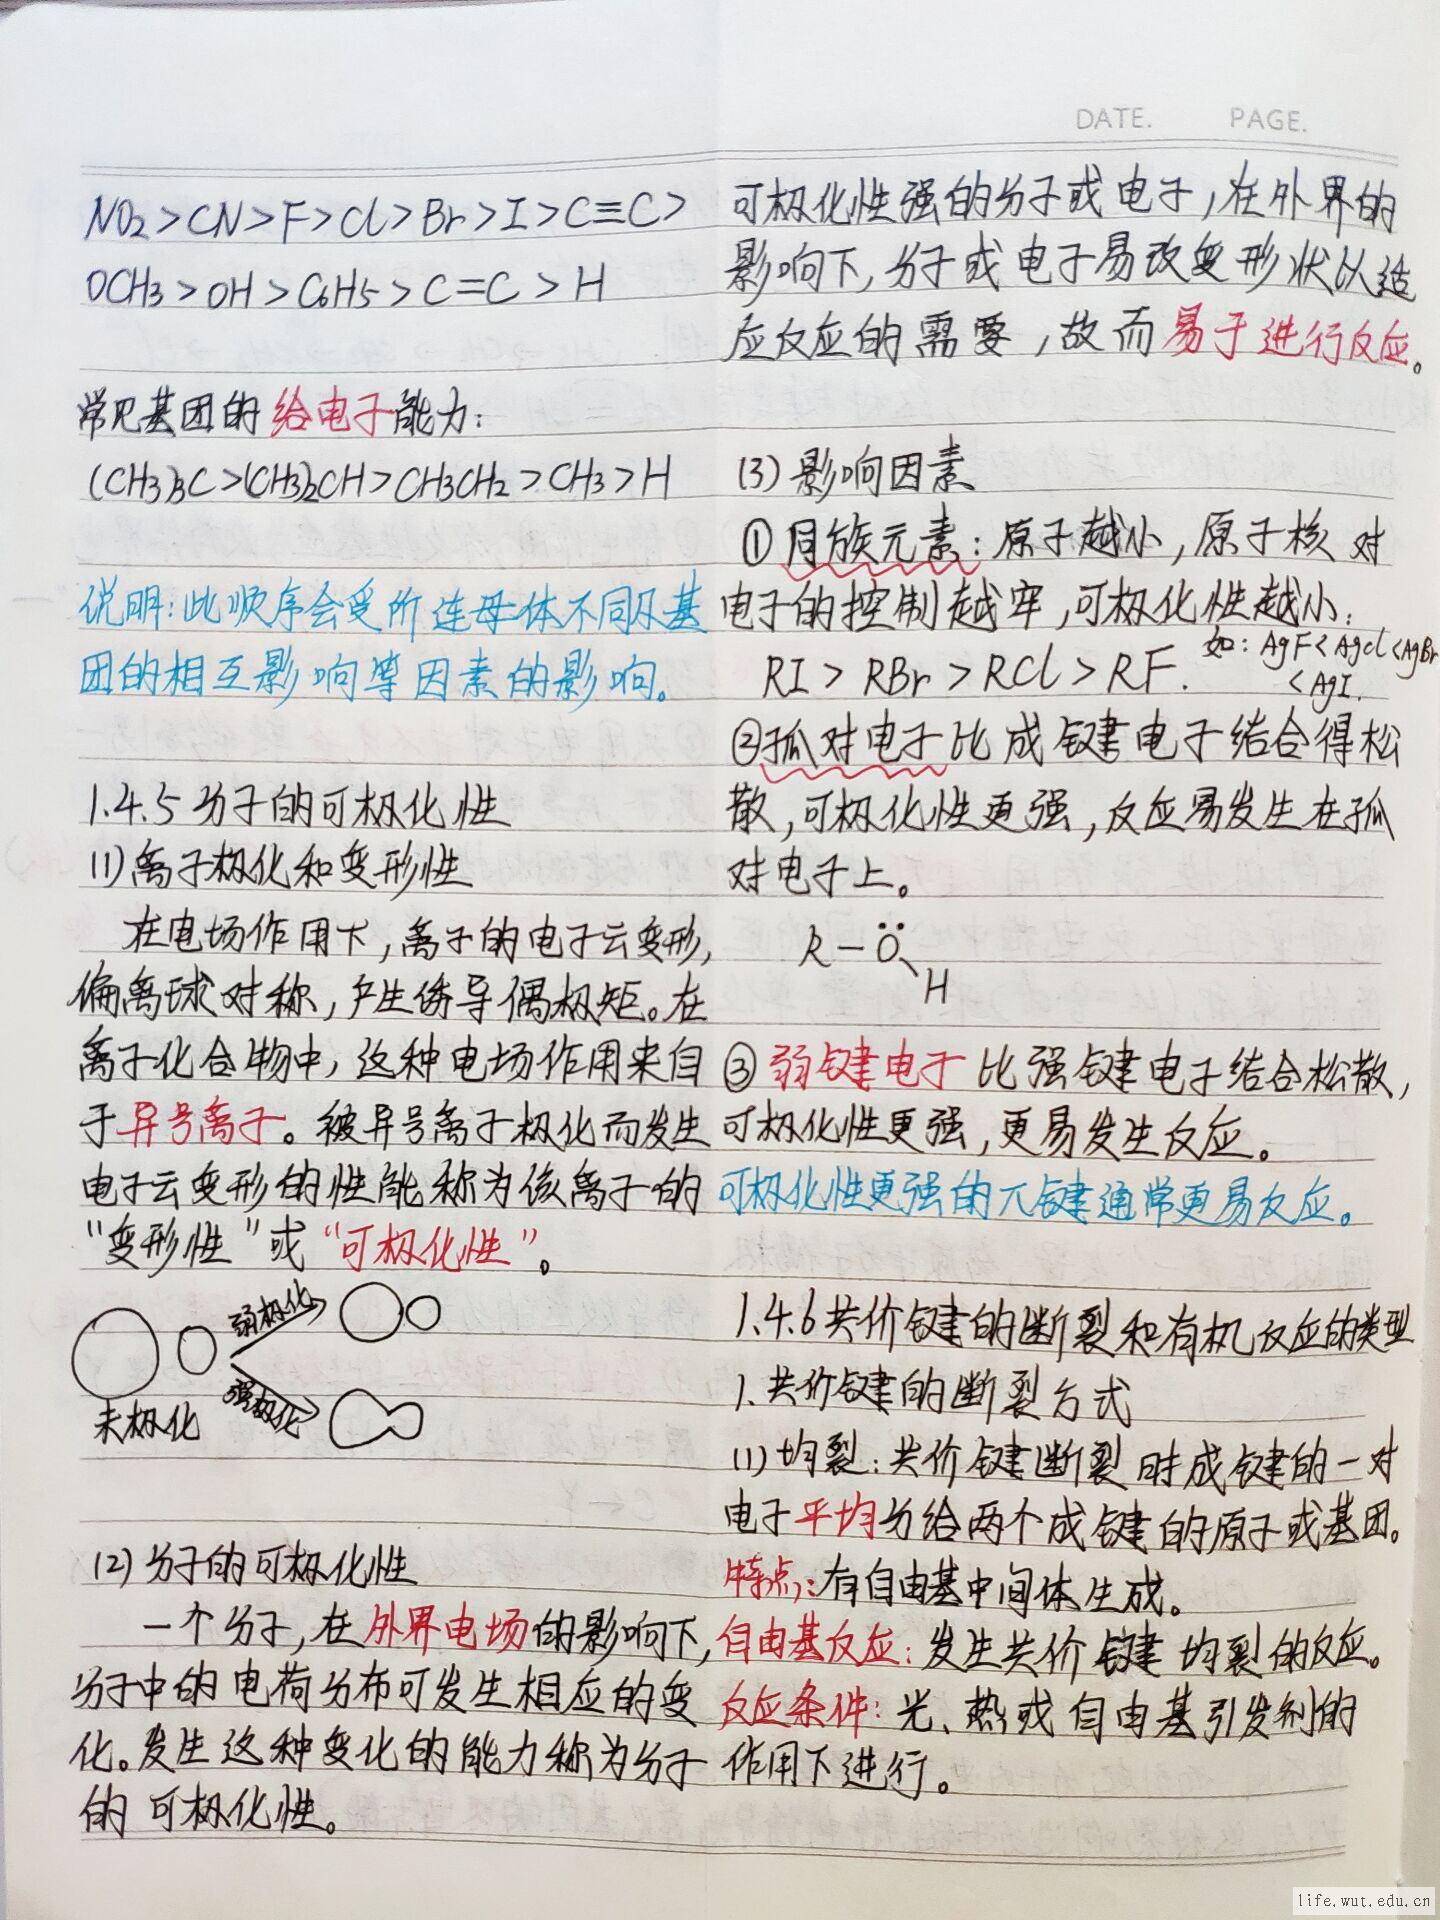 DATE. PAGE.
NO2>CN>F>Cl>Br>I>C≡C>
OCH3>OH>C6H5>C=C>H
常见基团的给电子能力:
(CH3)3C>(CH3)2CH>CH3CH2>CH3>H
说明:此顺序会受所连母体不同及基
团的相互影响等因素的影响。
1.4.5 分子的可极化性
(1)离子极化和变形性
在电场作用下,离子的电子云变形,
偏离球对称,产生诱导偶极矩。在
离子化合物中,这种电场作用来自
于异号离子。被异号离子极化而发生
电子云变形的性能称为该离子的
“变形性”或“可极化性”。
弱极化
强极化
未极化
(2)分子的可极化性
一个分子,在外界电场的影响下,
分子中的电荷分布可发生相应的变
化。发生这种变化的能力称为分子
的可极化性。
可极化性强的分子或电子,在外界的
影响下,分子或电子易改变形状以适
应反应的需要,故而易于进行反应。
(3)影响因素
①同族元素:原子越小,原子核对
电子的控制越牢,可极化性越小:
RI>RBr>RCl>RF.
如:AgF<AgCl<AgBr
<AgI.
②孤对电子比成键电子结合得松
散,可极化性更强,反应易发生在孤
对电子上。
R-Ö
H
③弱键电子比强键电子结合松散,
可极化性更强,更易发生反应。
可极化性更强的π键通常更易反应。
1.4.6共价键的断裂和有机反应的类型
1.共价键的断裂方式
(1)均裂:共价键断裂时成键的一对
电子平均分给两个成键的原子或基团。
特点:有自由基中间体生成。
自由基反应:发生共价键均裂的反应。
反应条件:光、热或自由基引发剂的
作用下进行。
life.wut.edu.cn